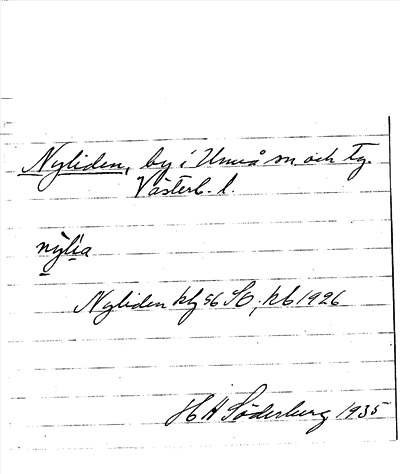 Nyliden, by i Umeå sn och tg.
Västerb. l.
nyli̯a
Nyliden kfg 56 SO; kb 1926
H H Söderberg 1935